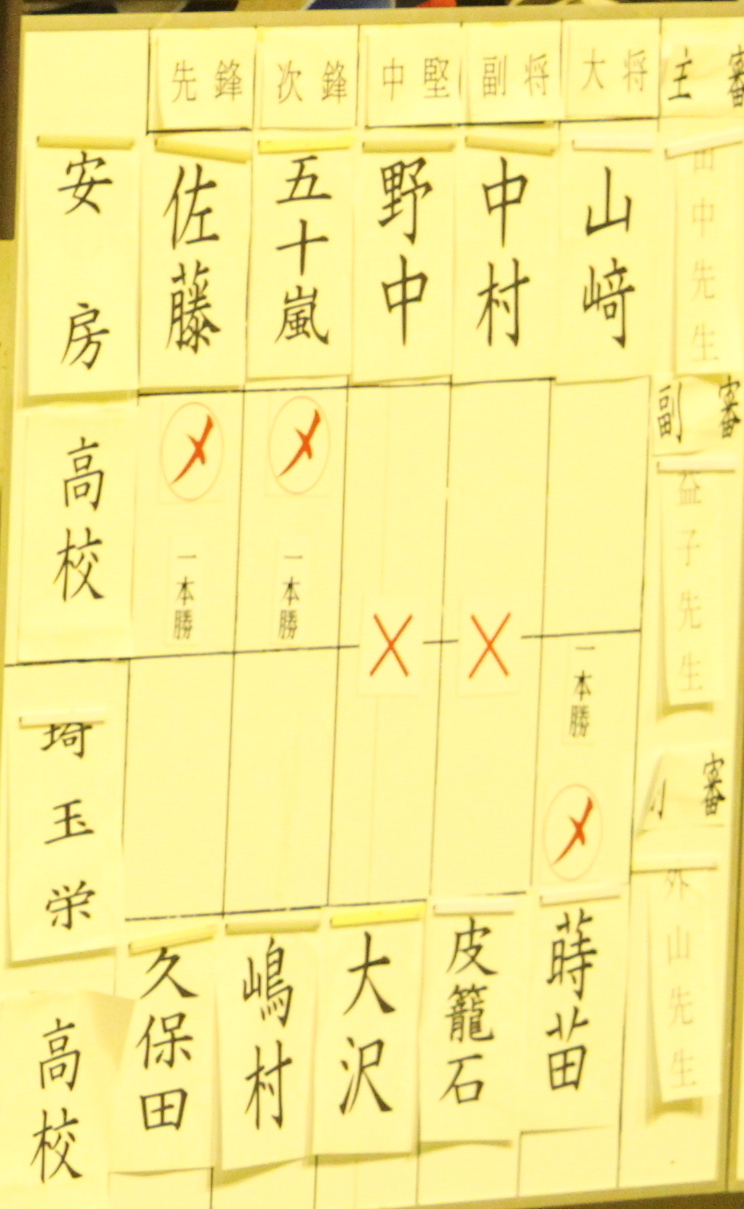 先鋒
次鋒
中堅
副将
大将
主審
安房
高校
佐藤
五十嵐
野中
中村
山﨑
田中先生
副審
益子先生
メ
一本勝
メ
一本勝
一本勝
メ
埼玉栄
高校
審
外山先生
久保田
嶋村
大沢
皮籠石
蒔苗